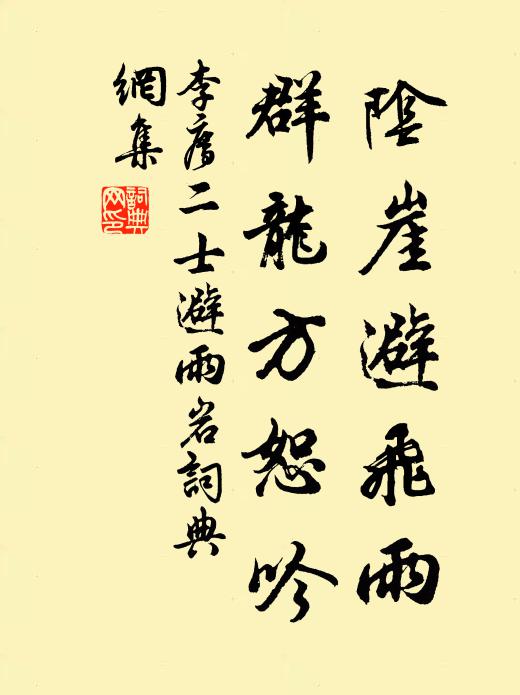 陰崖避飛雨
群龍方恕吟
李膺二士避雨岩詞典
網集
詞典網印